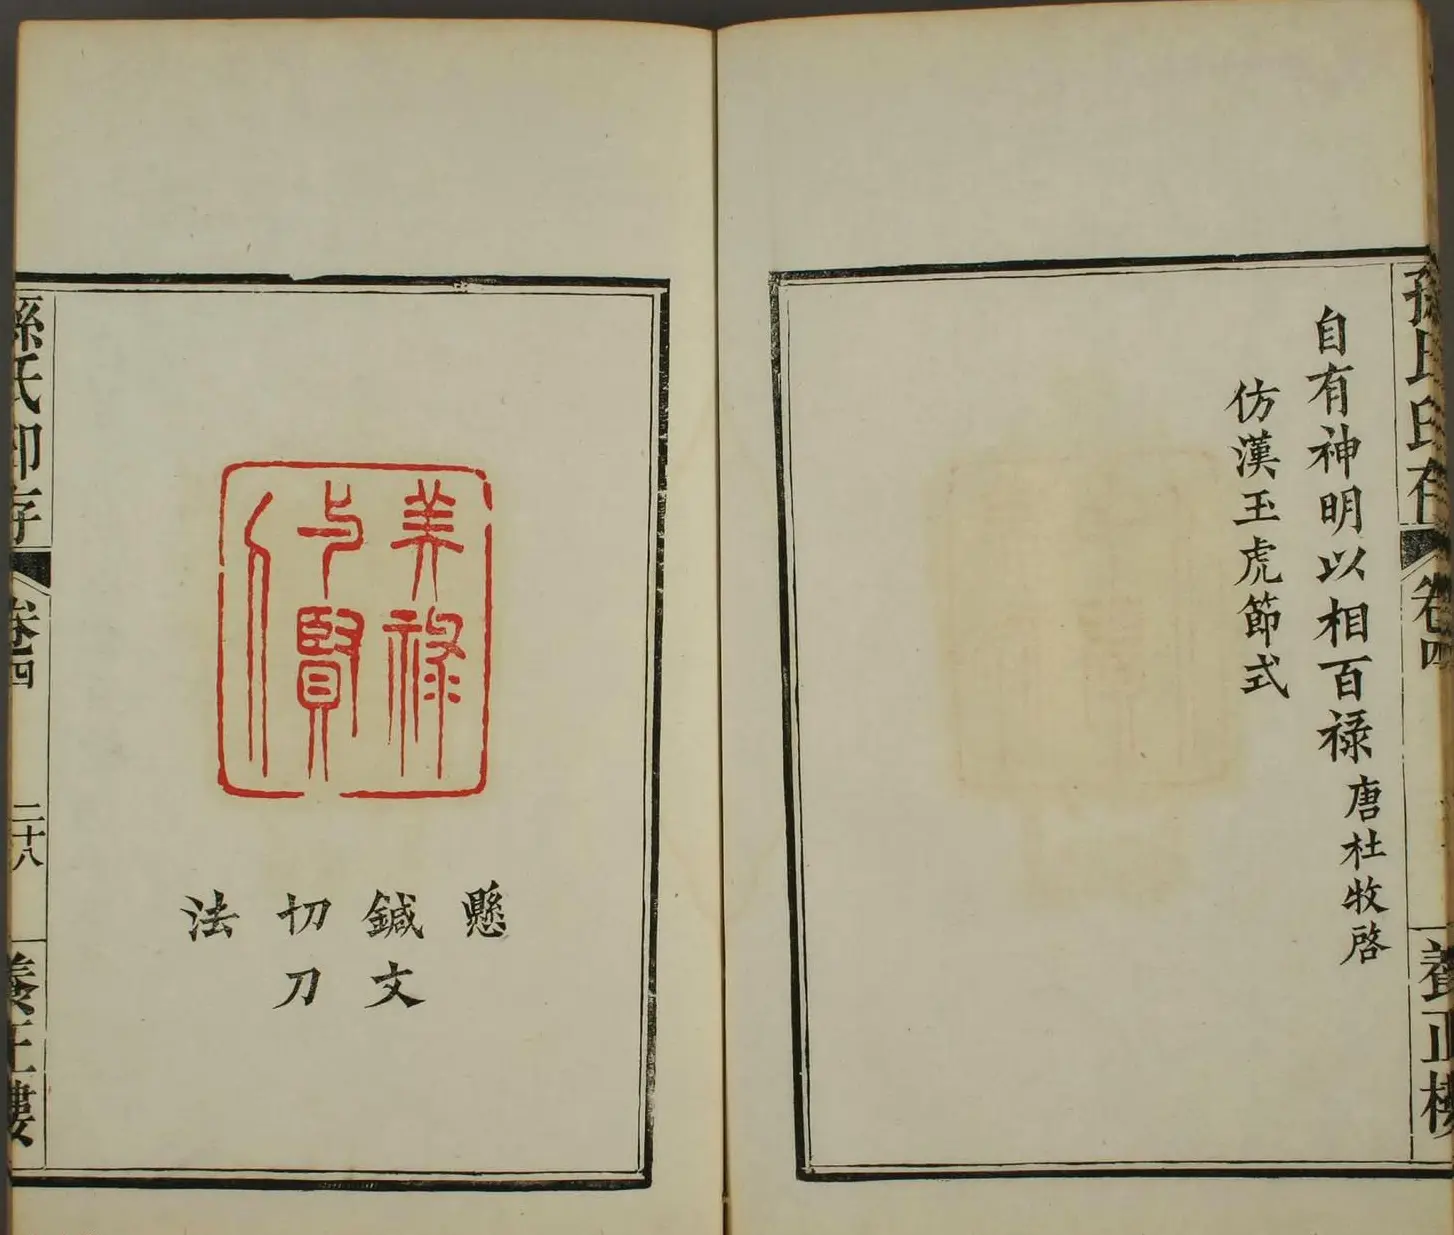 孫氏印存
卷四
養正樓
自有神明以相百禄唐杜牧啓
仿漢玉虎節式
美禄
与賢
人
懸
鍼文
切刀
法
孫氏印存
卷四
二十八
養正樓